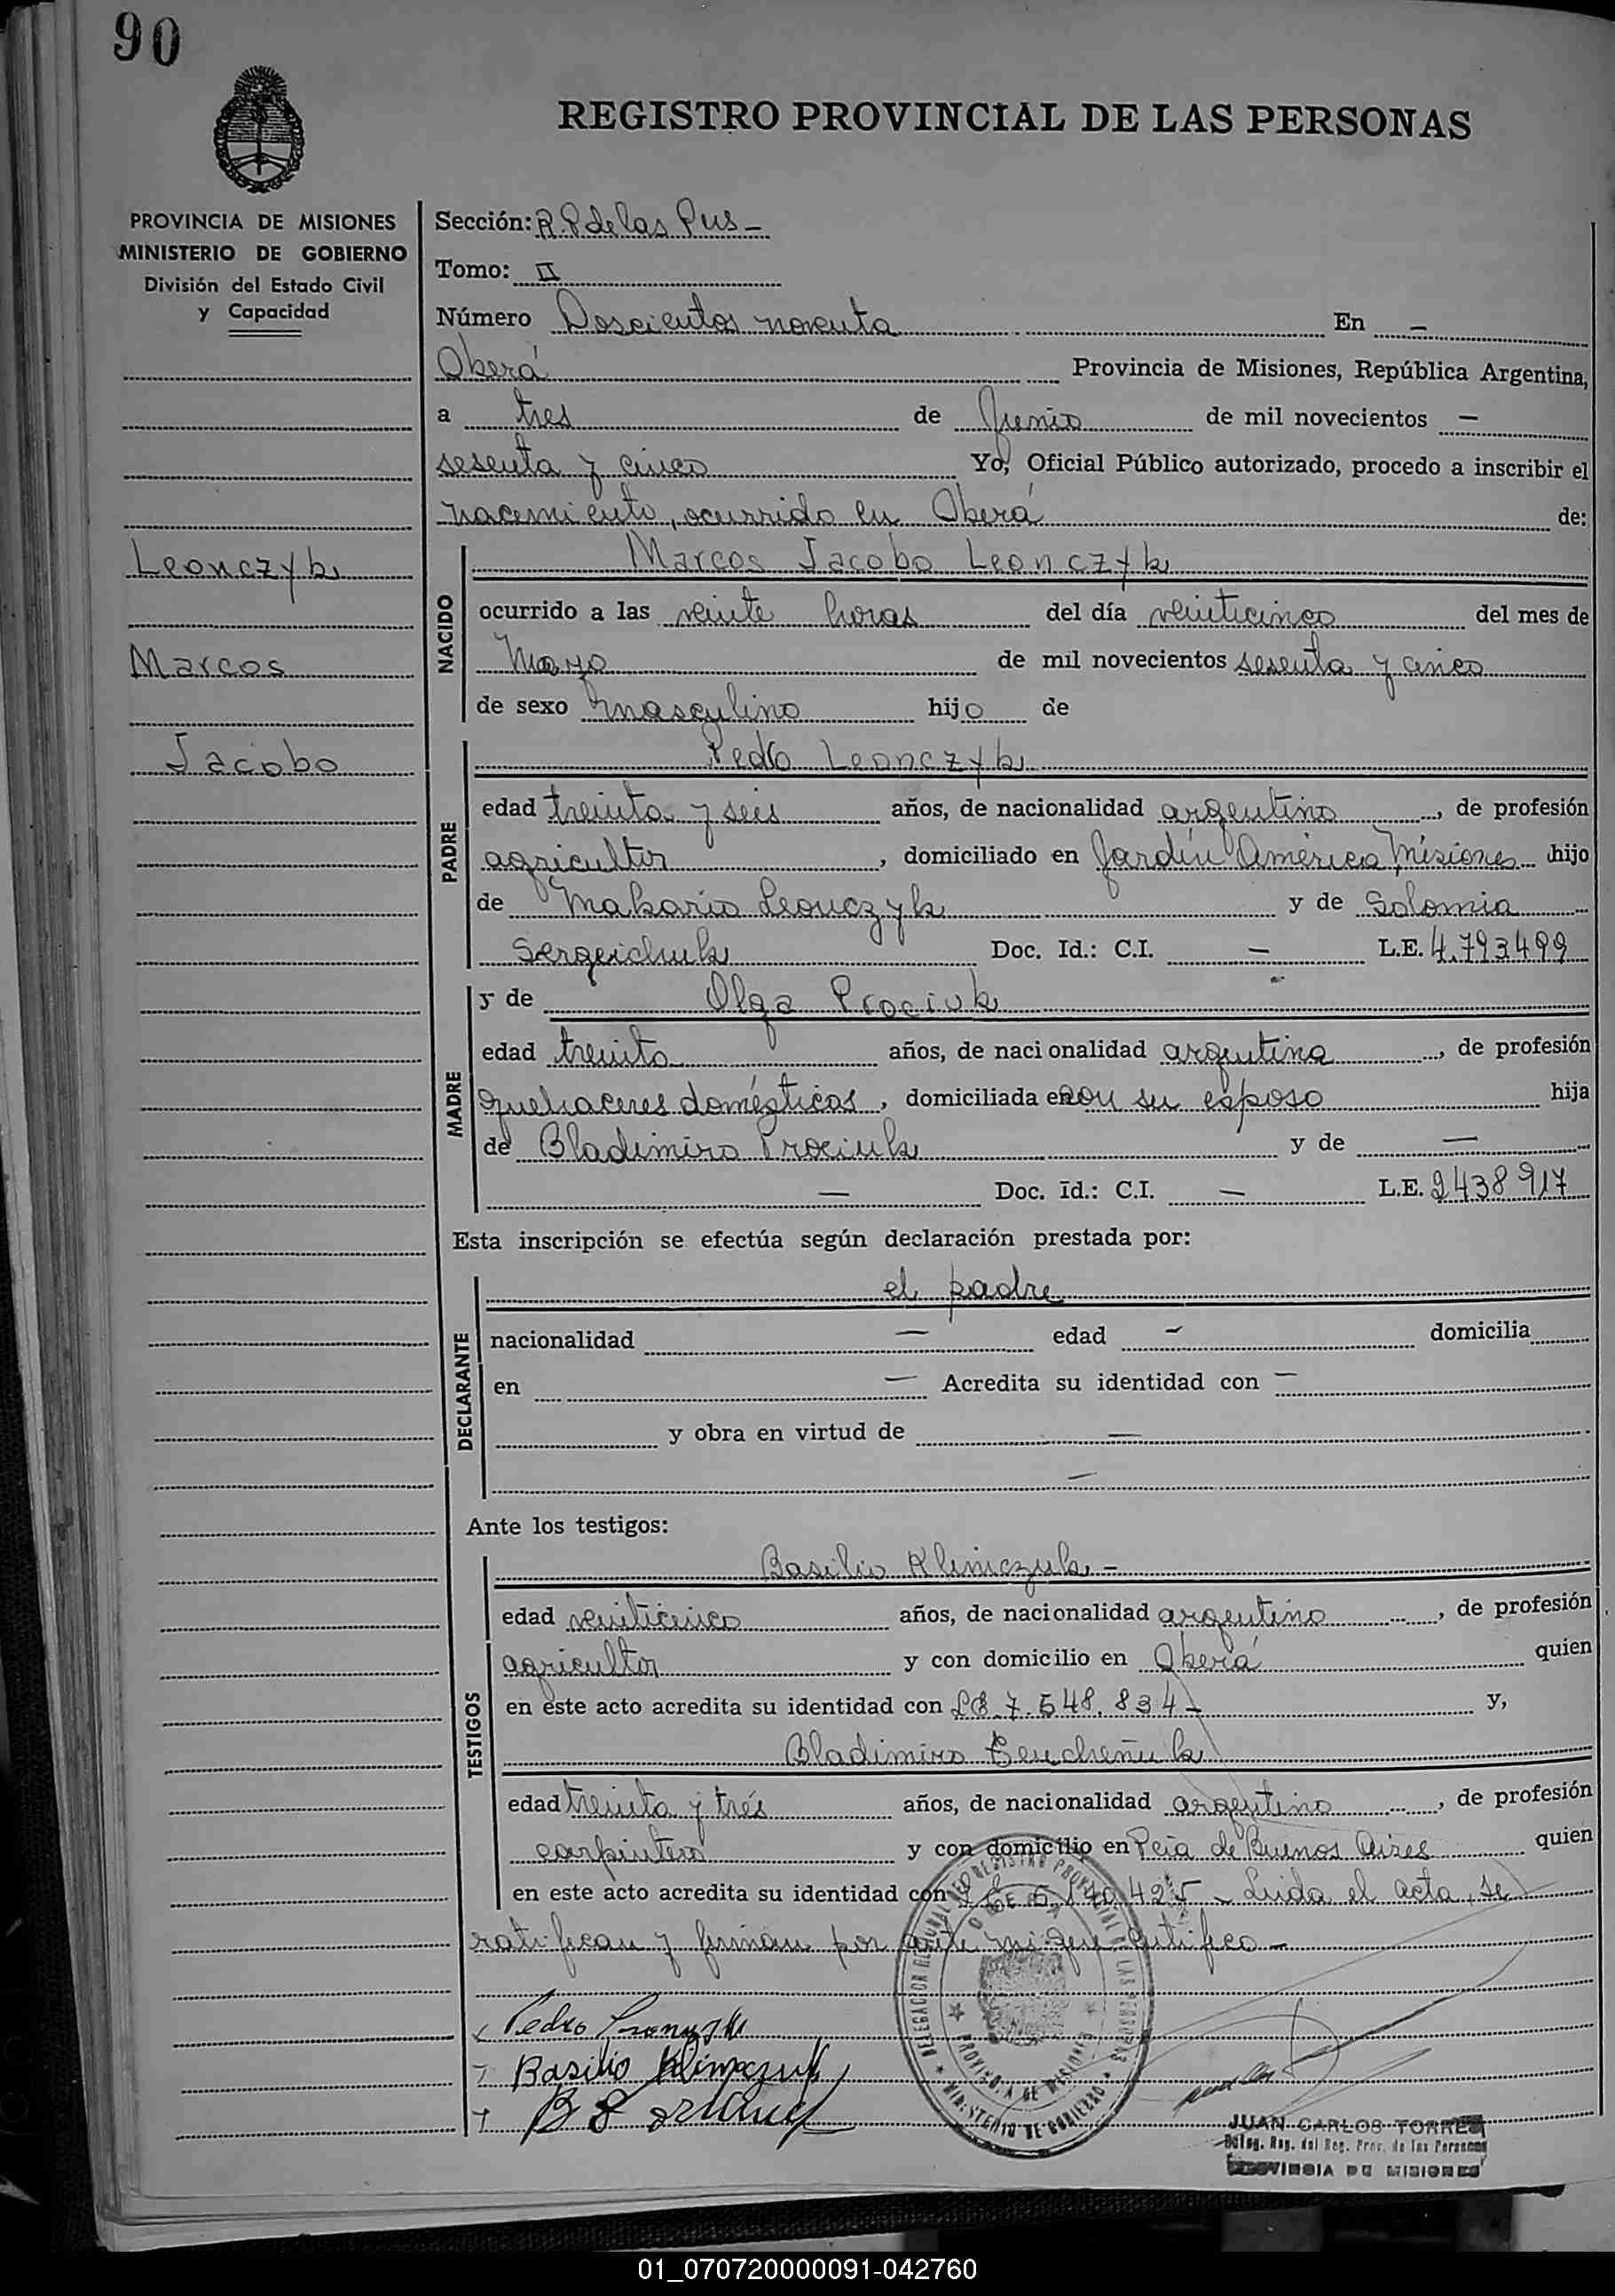 90
REGISTRO PROVINCIAL DE LAS PERSONAS
PROVINCIA DE MISIONES
MINISTERIO DE GOBIERNO
División del Estado Civil
y Capacidad
Leonczyk
Marcos
Jacobo
Sección: R.P de las Pns -
Tomo: II
Número Doscientos noventa En -
Oberá Provincia de Misiones, República Argentina,
a tres de Junio de mil novecientos -
sesenta y cinco Yo, Oficial Público autorizado, procedo a inscribir el
nacimiento, ocurrido en Oberá de:
NACIDO
Marcos Jacobo Leonczyk
ocurrido a las veinte horas del día veinticinco del mes de
Mayo de mil novecientos sesenta y cinco
de sexo masculino hijo de
PADRE
Pedro Leonczyk
edad treinta y seis años, de nacionalidad argentino, de profesión
agricultor, domiciliado en Jardín América Misiones hijo
de Makario Leonczyk y de Solomia
Sergeichuk Doc. Id.: C.I. - L.E. 4.793499
MADRE
y de Olga Prociuk
edad treinta años, de nacionalidad argentina, de profesión
quehaceres domésticos, domiciliada en con su esposo hija
de Bladimiro Prociuk y de -
- Doc. Id.: C.I. - L.E. 2438917
Esta inscripción se efectúa según declaración prestada por:
DECLARANTE
el padre
nacionalidad - edad - domicilia
en - Acredita su identidad con -
y obra en virtud de -
-
Ante los testigos:
TESTIGOS
Basilio Klimczuk -
edad veinticinco años, de nacionalidad argentino, de profesión
agricultor y con domicilio en Oberá quien
en este acto acredita su identidad con LE 7.548.834 - y,
Bladimiro
edad treinta y trés años, de nacionalidad argentino, de profesión
carpintero y con domicilio en Pcia de Buenos Aires quien
en este acto acredita su identidad con - Leida el acta, se
ratifican y firman por ante mi que certifico -
Pedro
Basilio Klimczuk
DELEGACION REGIONAL DEL REGISTRO PROVINCIAL DE LAS PERSONAS
OBERA
PROVINCIA DE MISIONES
MINISTERIO DE GOBIERNO
JUAN CARLOS TORRES
Deleg. Reg. del Reg. Prov. de las Personas
PROVINCIA DE MISIONES
01_070720000091-042760